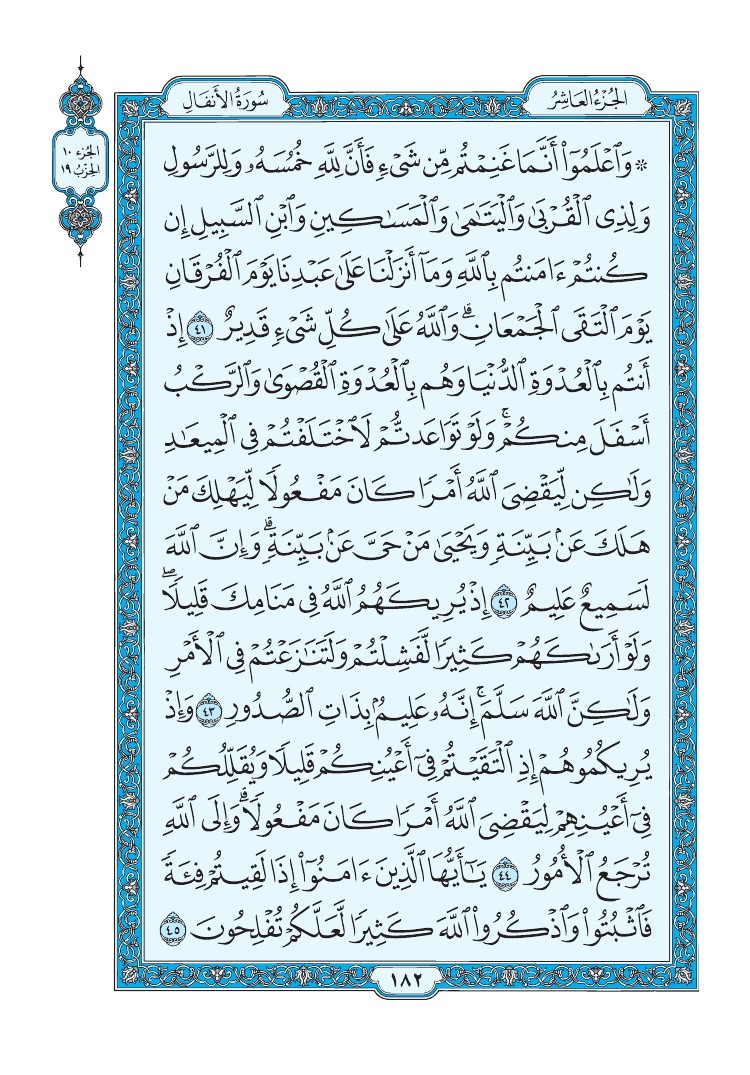 الجزء العاشر
سورة الأنفال
الجزء ١٠
الحزب ١٩
۞ وَٱعْلَمُوٓا۟ أَنَّمَا غَنِمْتُم مِّن شَىْءٍ فَأَنَّ لِلَّهِ خُمُسَهُۥ وَلِلرَّسُولِ
وَلِذِى ٱلْقُرْبَىٰ وَٱلْيَتَـٰمَىٰ وَٱلْمَسَـٰكِينِ وَٱبْنِ ٱلسَّبِيلِ إِن
كُنتُمْ ءَامَنتُم بِٱللَّهِ وَمَآ أَنزَلْنَا عَلَىٰ عَبْدِنَا يَوْمَ ٱلْفُرْقَانِ
يَوْمَ ٱلْتَقَى ٱلْجَمْعَانِ ۗ وَٱللَّهُ عَلَىٰ كُلِّ شَىْءٍ قَدِيرٌ ٤١ إِذْ
أَنتُم بِٱلْعُدْوَةِ ٱلدُّنْيَا وَهُم بِٱلْعُدْوَةِ ٱلْقُصْوَىٰ وَٱلرَّكْبُ
أَسْفَلَ مِنكُمْ ۚ وَلَوْ تَوَاعَدتُّمْ لَٱخْتَلَفْتُمْ فِى ٱلْمِيعَـٰدِ
وَلَـٰكِن لِّيَقْضِىَ ٱللَّهُ أَمْرًا كَانَ مَفْعُولًا لِّيَهْلِكَ مَنْ
هَلَكَ عَنۢ بَيِّنَةٍ وَيَحْيَىٰ مَنْ حَىَّ عَنۢ بَيِّنَةٍ ۗ وَإِنَّ ٱللَّهَ
لَسَمِيعٌ عَلِيمٌ ٤٢ إِذْ يُرِيكَهُمُ ٱللَّهُ فِى مَنَامِكَ قَلِيلًا ۖ
وَلَوْ أَرَىٰكَهُمْ كَثِيرًا لَّفَشِلْتُمْ وَلَتَنَـٰزَعْتُمْ فِى ٱلْأَمْرِ
وَلَـٰكِنَّ ٱللَّهَ سَلَّمَ ۚ إِنَّهُۥ عَلِيمٌۢ بِذَاتِ ٱلصُّدُورِ ٤٣ وَإِذْ
يُرِيكُمُوهُمْ إِذِ ٱلْتَقَيْتُمْ فِىٓ أَعْيُنِكُمْ قَلِيلًا وَيُقَلِّلُكُمْ
فِىٓ أَعْيُنِهِمْ لِيَقْضِىَ ٱللَّهُ أَمْرًا كَانَ مَفْعُولًا ۗ وَإِلَى ٱللَّهِ
تُرْجَعُ ٱلْأُمُورُ ٤٤ يَـٰٓأَيُّهَا ٱلَّذِينَ ءَامَنُوٓا۟ إِذَا لَقِيتُمْ فِئَةً
فَٱثْبُتُوا۟ وَٱذْكُرُوا۟ ٱللَّهَ كَثِيرًا لَّعَلَّكُمْ تُفْلِحُونَ ٤٥
١٨٢